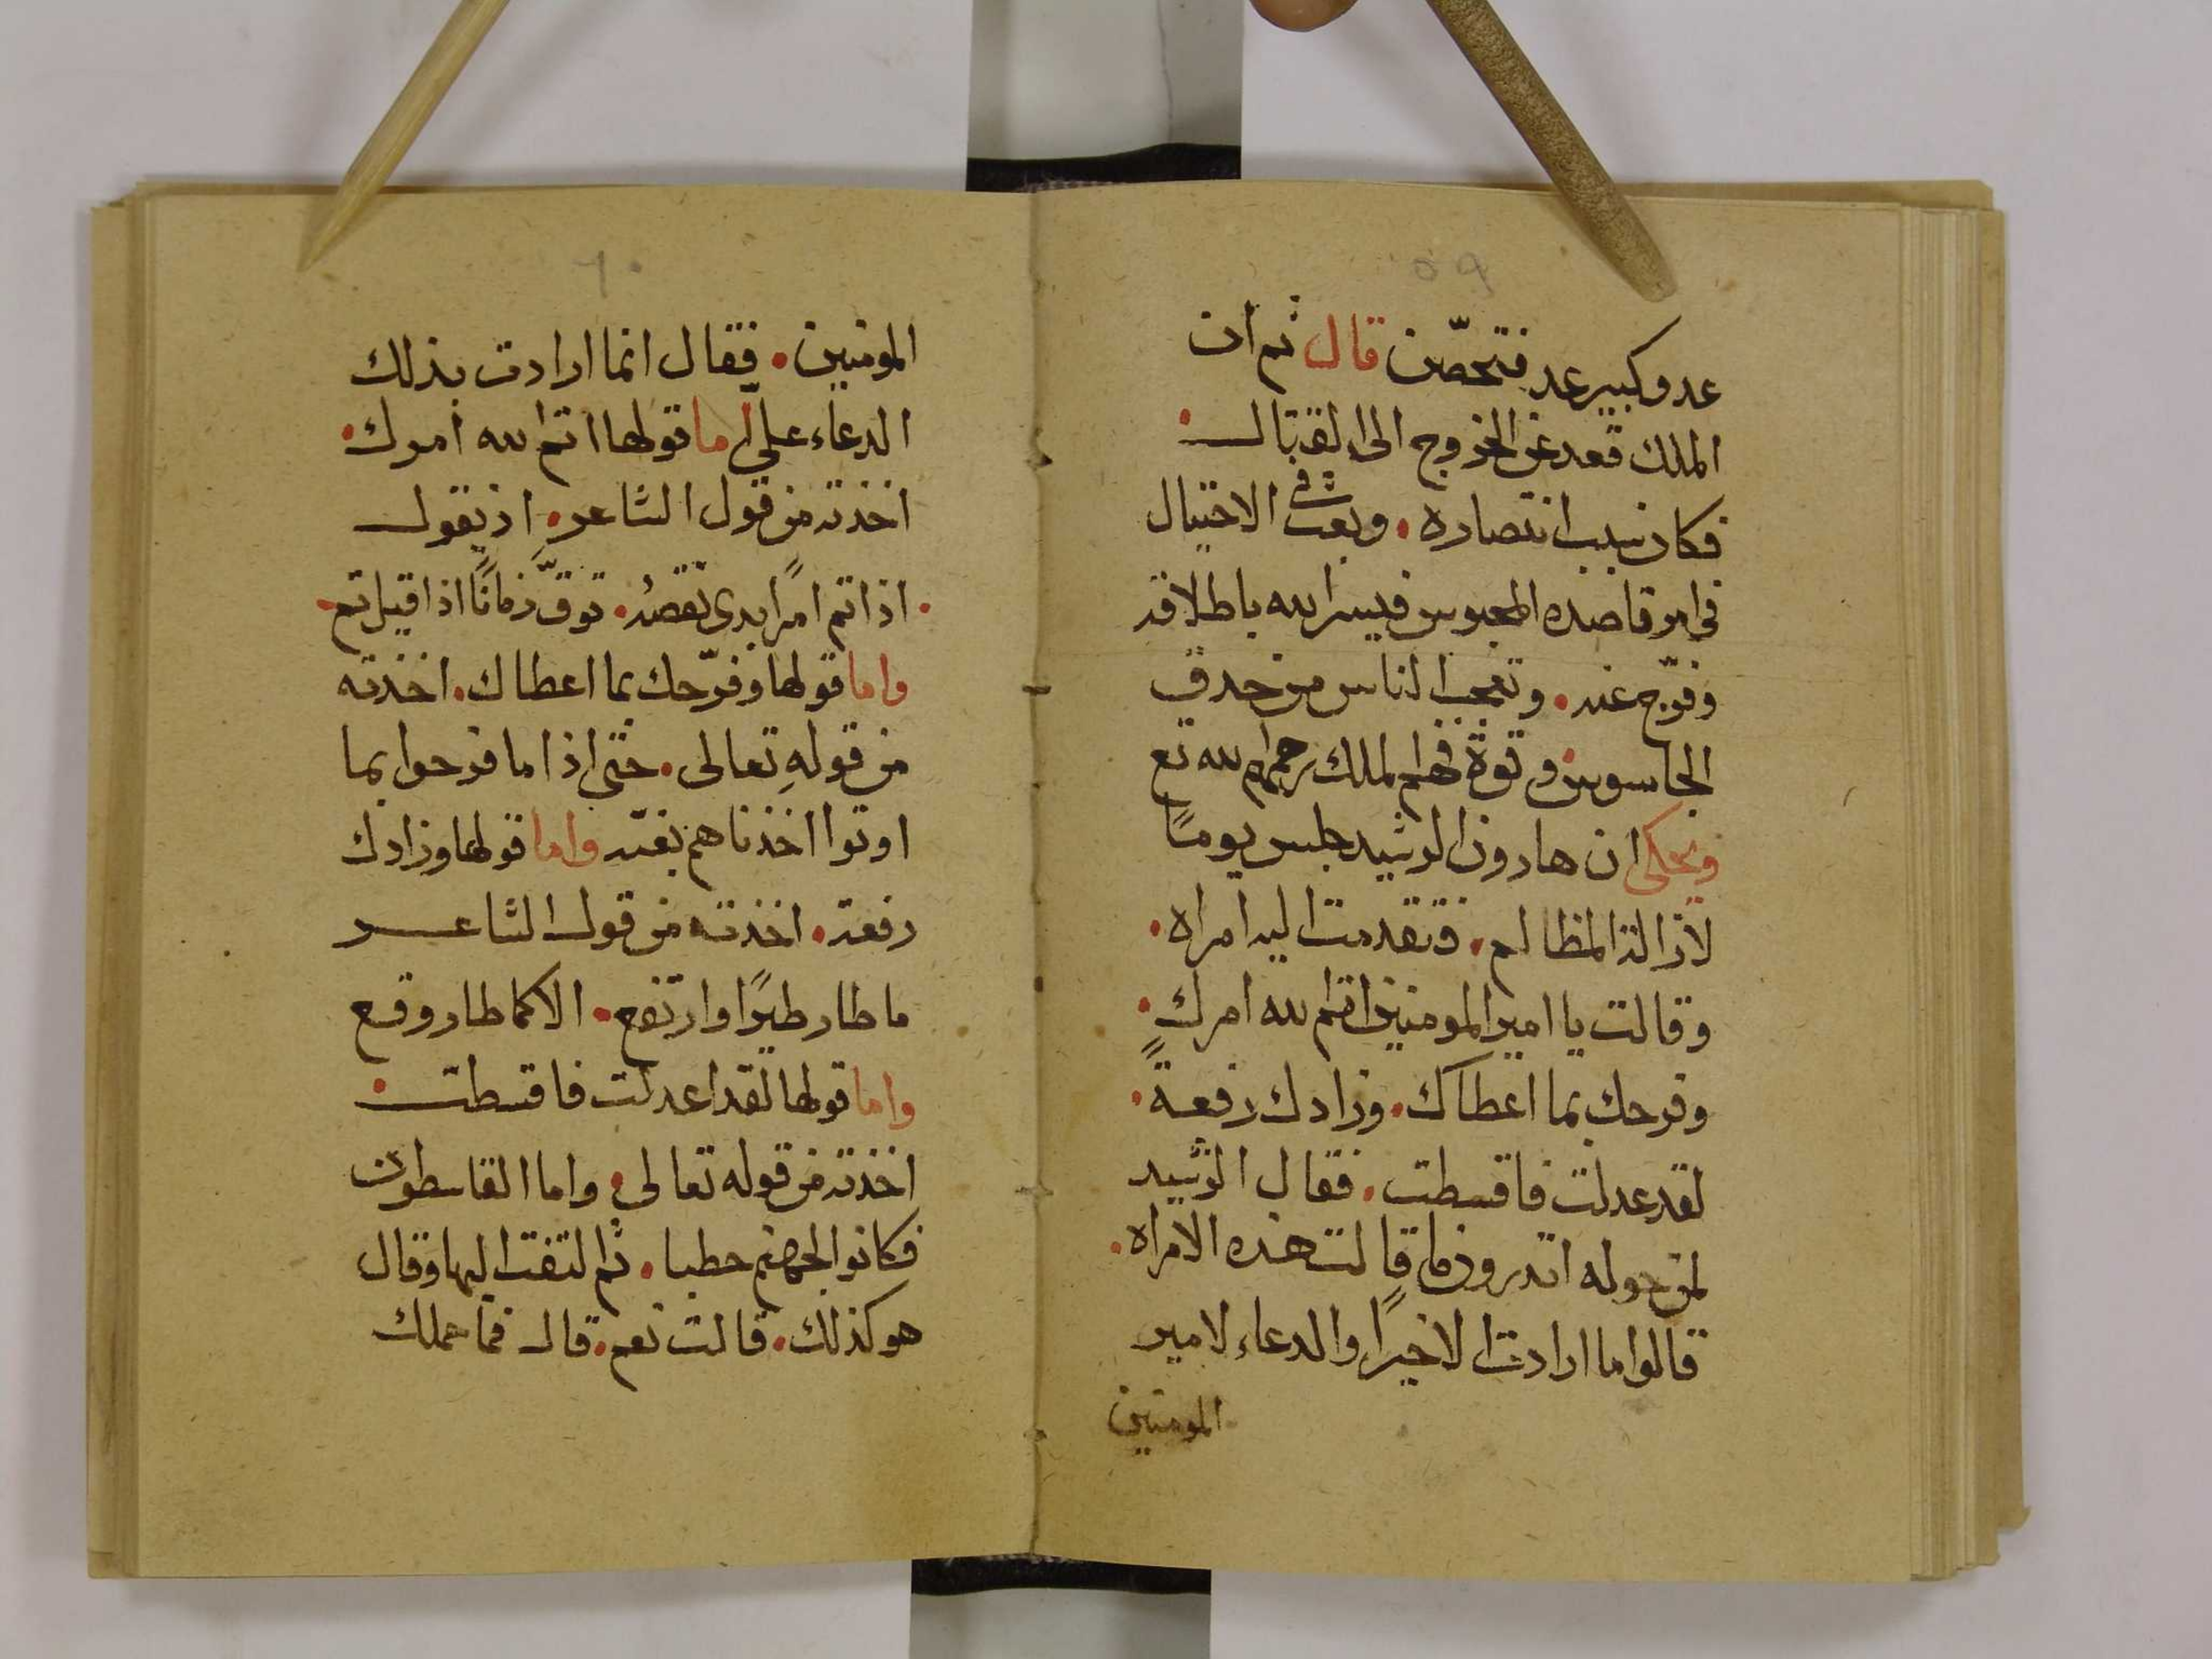 ٥٩
عدو كبير عد فتحصّن قال ثم ان
الملك قعد عن الخروج الى القتال
فكان سبب انتصاره . وبعث في الاحتيال
في امر قاصده المحبوس فيسر الله باطلاقه
وفرّج عنه . وتعجب الناس من حدق
الجاسوس وقوة فهم الملك رحمهم الله تع
ويحكى ان هارون الرشيد جلس يومًا
لازالة المظالم . فتقدمت اليه امراه .
وقالت يا امير المومنين اتم الله امرك .
وفرحك بما اعطاك . وزادك رفعةً .
لقد عدلت فاقسطت . فقال الرشيد
لمن حوله اتدرون ما قالت هذه الامراه .
قالوا ما ارادت الا خيرًا والدعاء لامير
المومنين
٦٠
المومنين . فقال انما ارادت بذلك
الدعاء علي اما قولها اتم الله امرك .
اخذته من قول الشاعر . اذ يقول
. اذا تم امرًا بدى نقصه . توقّ زمانًا اذا قيل تم .
واما قولها وفرّحك بما اعطاك . اخذته
من قولهِ تعالى . حتى اذا ما فرحوا بما
اوتوا اخذناهم بغتة واما قولها وزادك
رفعة . اخذته من قول الشاعر
ما طار طيرًا وارتفع . الا كما طار وقع
واما قولها لقد اعدلت فاقسطت .
اخذته من قوله تعالى . واما القاسطون
فكانوا لجهنم حطبا . ثم التفت اليها وقال
هو كذلك . قالت نعم . قال فما حملك